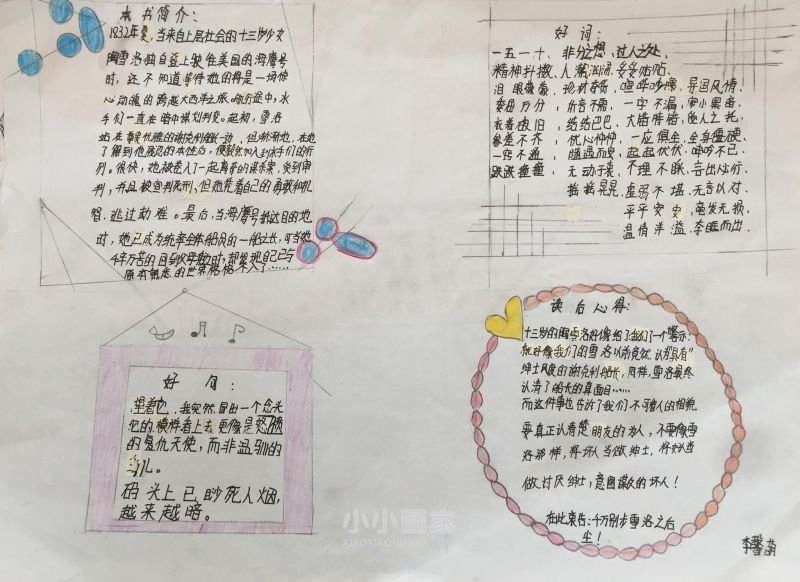 本书简介：
1832年夏，当来自上层社会的十三岁少女
陶雪洛独自登上驶往美国的海鹰号
时，还不知道等待她的将是一场惊
心动魄的跨越大西洋之旅。航行途中，水
手们一直在暗中谋划判变。起初，雪洛
站在尊贵优雅的谢克利船长一边，但渐渐地，在她
了解到他残忍的本性后，便毅然加入到水手们的行
列。很快，她被卷入了一起离奇的谋杀案，受到审
判，并且被宣判死刑，但她凭着自己的勇敢和机
智，逃过劫难。最后，当海鹰号抵达目的地
时，她已成为统率全体船员的一船之长，可当她
千辛万苦的回到父母身边时，却发现自己已与
原本熟悉的世界格格不入了……
好词：
一五一十、非分之想、过人之处、
精神抖擞、人潮汹涌、妥妥帖帖、
泪眼朦胧、
委屈万分、一字不漏、
衣着破旧、结结巴巴、
参差不齐、忧心忡忡、一应俱全、全身僵硬、
一窍不通、随遇而安、起起伏伏、
跌跌撞撞、无动于衷、不理不睬、言出必行、
摇摇晃晃、虚弱不堪、无言以对、
平平安安、毫发无损、
温情洋溢、夺眶而出、
好句：
望着它，我突然冒出一个念头
它的模样看上去更像是怒吼
的复仇天使，而非温驯的
鸟儿。
码头上已渺无人烟，
越来越暗。
读后心得：
十三岁的陶雪洛好像给了我们一个警示：
就好像我们的雪洛以前竟然认为具有"
绅士风度的谢克利船长，同样，雪洛最终
认清了船长的真面目……
而这件事也告诉了我们不可看人的相貌
要真正认清楚朋友的为人，不要像雪
洛那样，将坏人当做绅士，将好人当
做讨厌绅士，意图谋久的坏人！
在此衷告：千万别步雪洛之后
尘！
李馨菡
小小画家